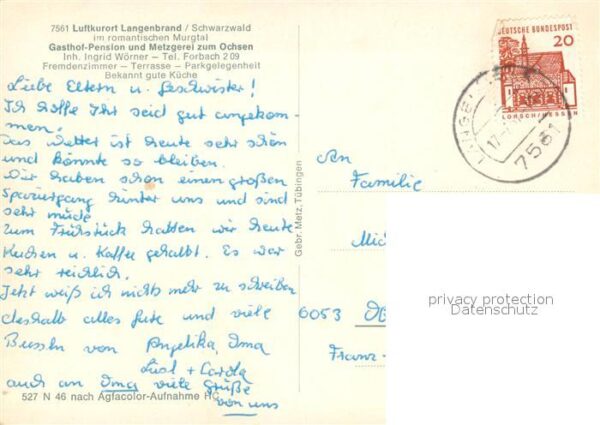 7561 Luftkurort Langenbrand / Schwarzwald
im romantischen Murgtal
Gasthof-Pension und Metzgerei zum Ochsen
Inh. Ingrid Wörner – Tel. Forbach 2 09
Fremdenzimmer – Terrasse – Parkgelegenheit
Bekannt gute Küche
Liebe Eltern u. Geschwister!
Ich hoffe Ihr seid gut angekom-
men.
Das Wetter ist heute sehr schön
und könnte so bleiben.
Wir haben schon einen großen
Spaziergang hinter uns und sind
sehr müde
Zum Frühstück hatten wir heute
Kuchen u. Kaffee gehabt. Es war
sehr reichlich.
Jetzt weiß ich nichts mehr zu schreiben
deshalb alles Gute und viele
Bussln von Angelika, Oma
Lusl + Carola
auch an Oma viele Grüße
von uns
527 N 46 nach Agfacolor-Aufnahme HC
Gebr. Metz, Tübingen
DEUTSCHE BUNDESPOST
20
LORSCH/HESSEN
7561
An
Familie
6053
Franz-
privacy protection
Datenschutz